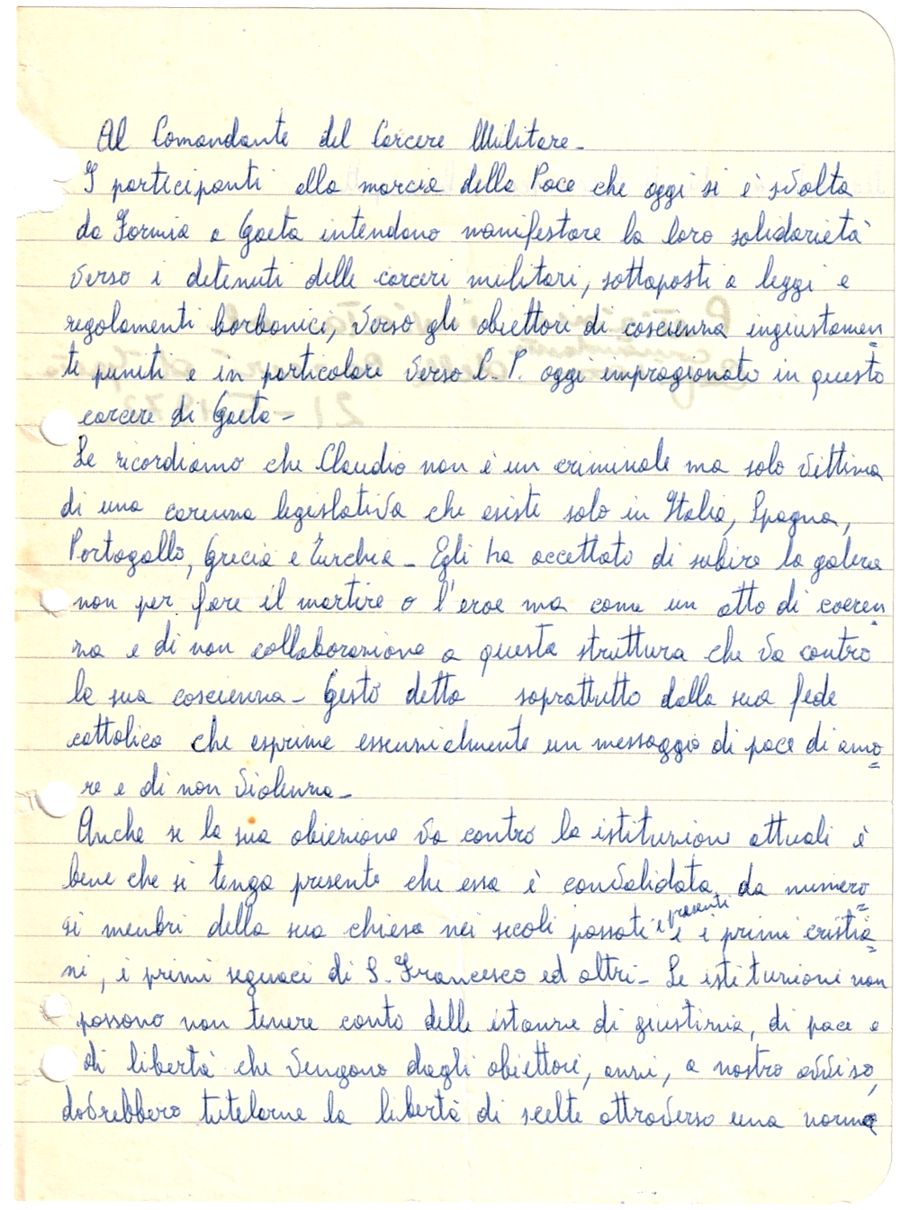 Al Comandante del Carcere Militare -
I partecipanti alla marcia della Pace che oggi si è svolta
da Formia a Gaeta intendono manifestare la loro solidarietà
verso i detenuti delle carceri militari, sottoposti a leggi e
regolamenti borbonici, verso gli obiettori di coscienza ingiustamen
te puniti e in particolare verso C. P. oggi imprigionato in questo
carcere di Gaeta -
Le ricordiamo che Claudio non è un criminale ma solo vittima
di una carenza legislativa che esiste solo in Italia, Spagna,
Portogallo, Grecia e Turchia - Egli ha accettato di subire la galera
non per fare il martire o l'eroe ma come un atto di coeren
za e di non collaborazione a questa struttura che va contro
la sua coscienza - Gesto detto soprattutto dalla sua fede
cattolica che esprime essenzialmente un messaggio di pace di amo
re e di non violenza -
Anche se la sua obiezione va contro la istituzione attuali è
bene che si tenga presente che essa è convalidata da numero
si membri della sua chiesa nei secoli passati e presenti i i primi cristia
ni, i primi seguaci di S. Francesco ed altri - Le istituzioni non
possono non tenere conto delle istanze di giustizia, di pace e
di libertà che vengono dagli obiettori, anzi, a nostro avviso,
dovrebbero tutelarne la libertà di scelte attraverso una norma